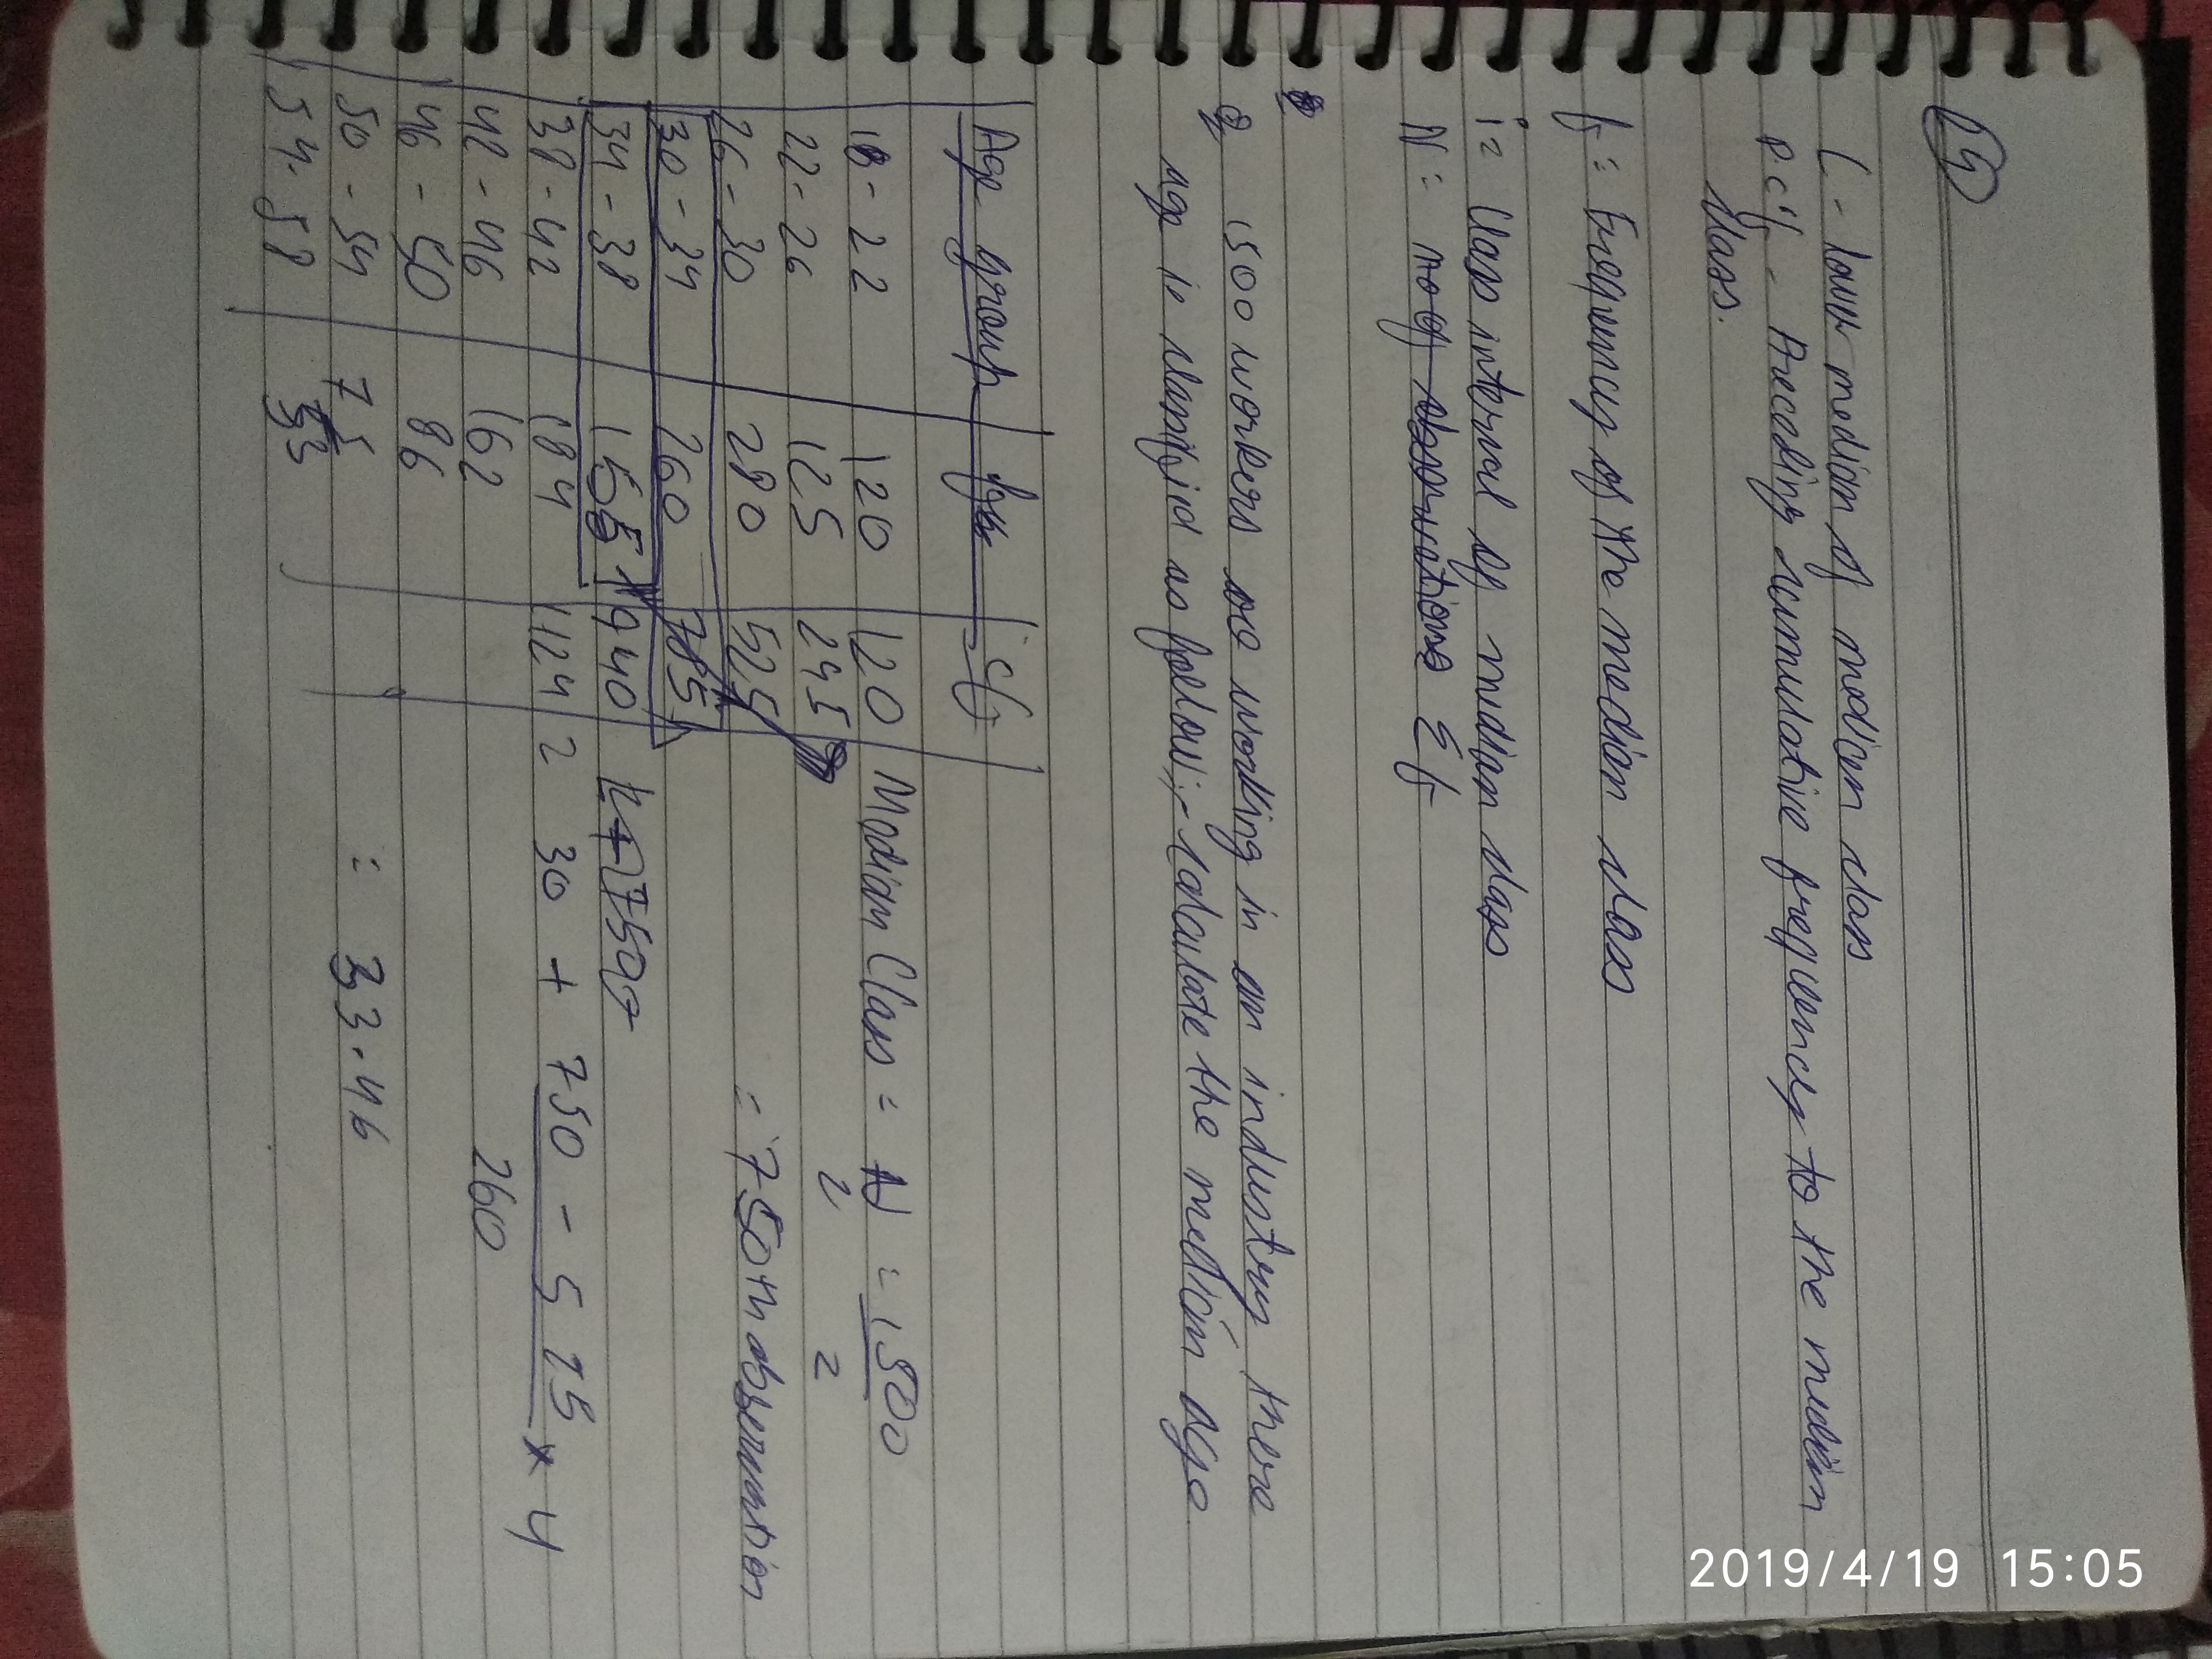 L - lower median of median class
p.c.f - Preceding cummulative frequency to the median
class.
f = Frequency of the median class
i = Class interval of median class
N = no of observations Σf
Q 1500 workers are working in an industry there
age is clasified as follow:- Calculate the median age.
Age group fre cf
18 - 22 120 120 Median Class = N = 1500
2 2
22 - 26 125 245
26 - 30 280 525 = 750th observation
30 - 34 260 785
34 - 38 155 940
38 - 42 184 1124 = 30 + 750 - 525 × 4
42 - 46 162 260
46 - 50 86
50 - 54 75 = 33.46
54 - 58 53
2019/4/19 15:05